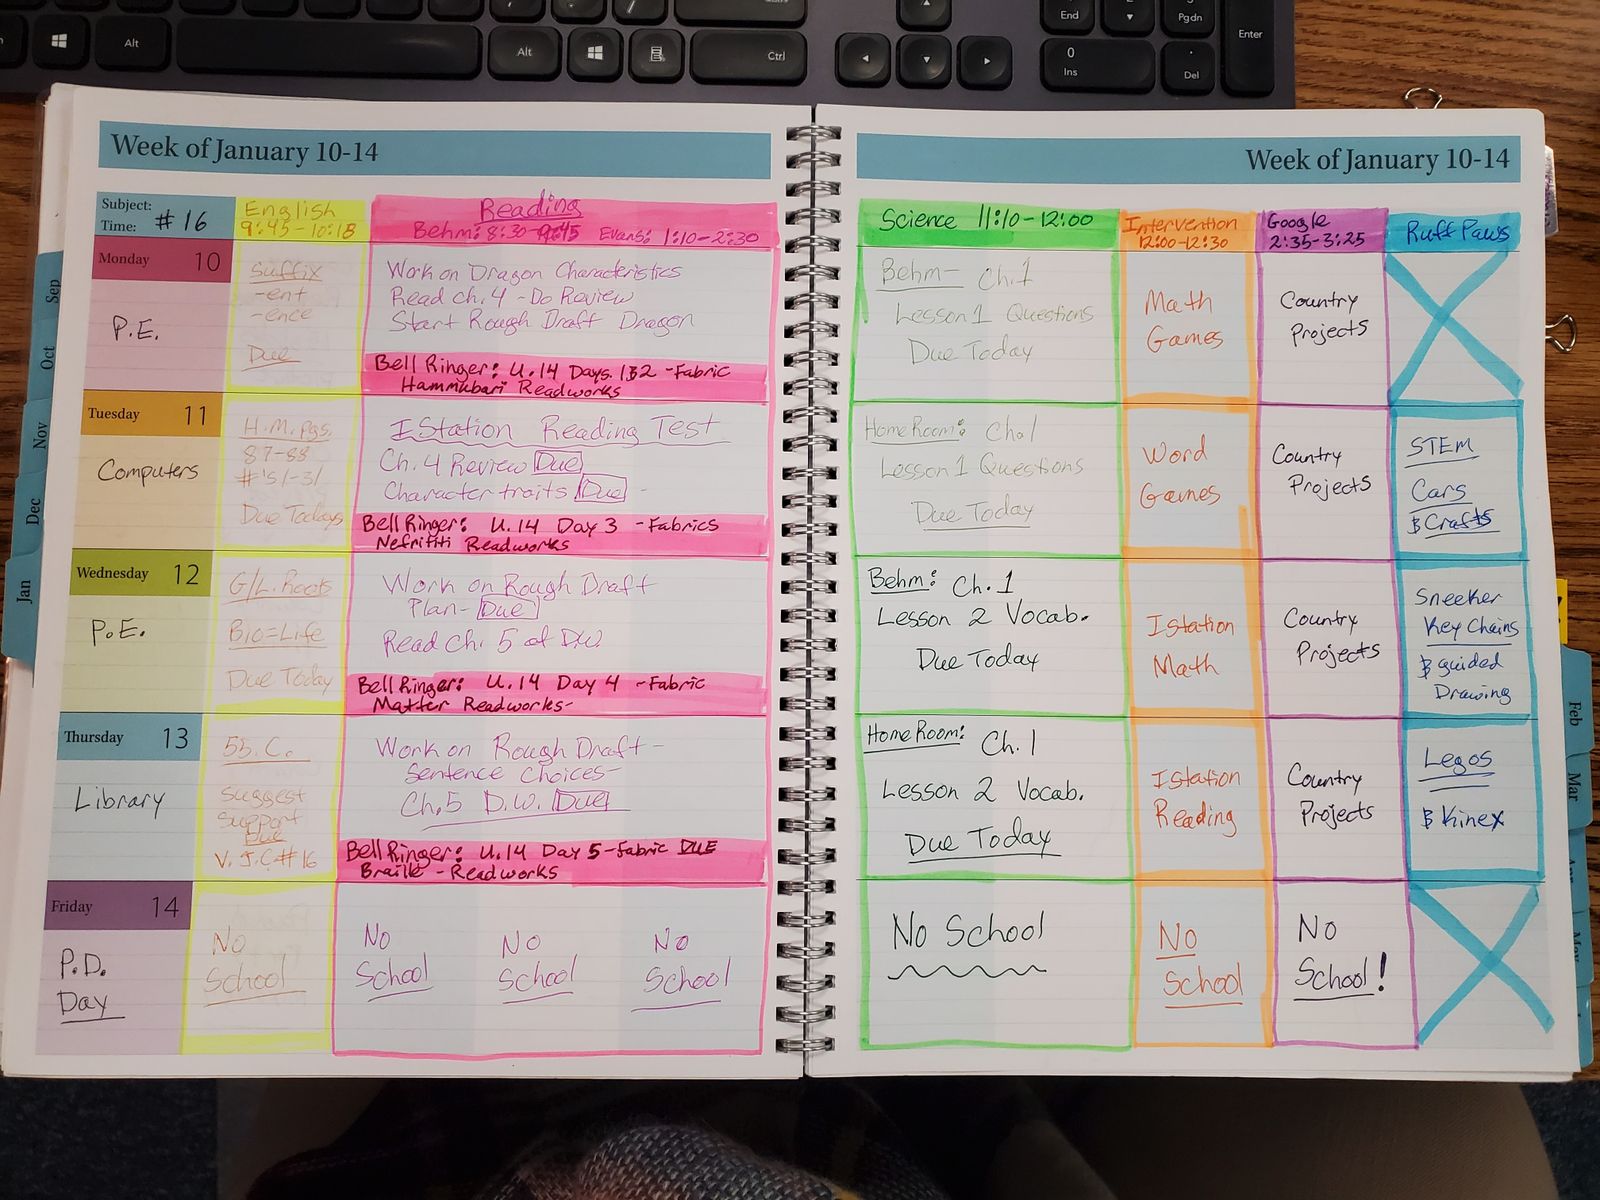 Alt
Alt
Ctrl
End
Pgdn
Enter
0
Ins
Del
Week of January 10-14
Subject:
Time: #16
English
9:45-10:18
Reading
Behm: 8:30-9:45 Evans: 1:10-2:30
Monday 10
P.E.
Suffix
-ent
-ence
Due
Work on Dragon Characteristics
Read ch. 4 - Do Review
Start Rough Draft Dragon
Bell Ringer: U.14 Days 1&2 - Fabric
Hammubari Readworks
Tuesday 11
Computers
H.M. pgs.
87-88
#'s 1-31
Due Today
IStation Reading Test
Ch. 4 Review Due
Character traits Due -
Bell Ringer: U.14 Day 3 - Fabrics
Nefritifi Readworks
Wednesday 12
P.E.
G/L. Roots
Bio=Life
Due Today
Work on Rough Draft
Plan- Due
Read Ch. 5 of D.W.
Bell Ringer: U.14 Day 4 - Fabric
Matter Readworks-
Thursday 13
Library
55. C.
Suggest
Support
Due
V. J.C. #16
Work on Rough Draft -
Sentence Choices-
Ch.5 D.W. Due
Bell Ringer: U.14 Day 5 - Fabric DUE
Braille - Readworks
Friday 14
P.D.
Day
No
School
No
School
No
School
No
School
Sep
Oct
Nov
Dec
Jan
Week of January 10-14
Science 11:10-12:00
Intervention
12:00-12:30
Google
2:35-3:25
Ruff Paws
Behm- Ch.1
Lesson 1 Questions
Due Today
Math
Games
Country
Projects
Home Room: Ch.1
Lesson 1 Questions
Due Today
Word
Games
Country
Projects
STEM
Cars
& Crafts
Behm: Ch. 1
Lesson 2 Vocab.
Due Today
Istation
Math
Country
Projects
Sneeker
Key Chains
& guided
Drawing
Home Room: Ch. 1
Lesson 2 Vocab.
Due Today
Istation
Reading
Country
Projects
Legos
& Kinex
No School
No
School
No
School!
Feb
Mar